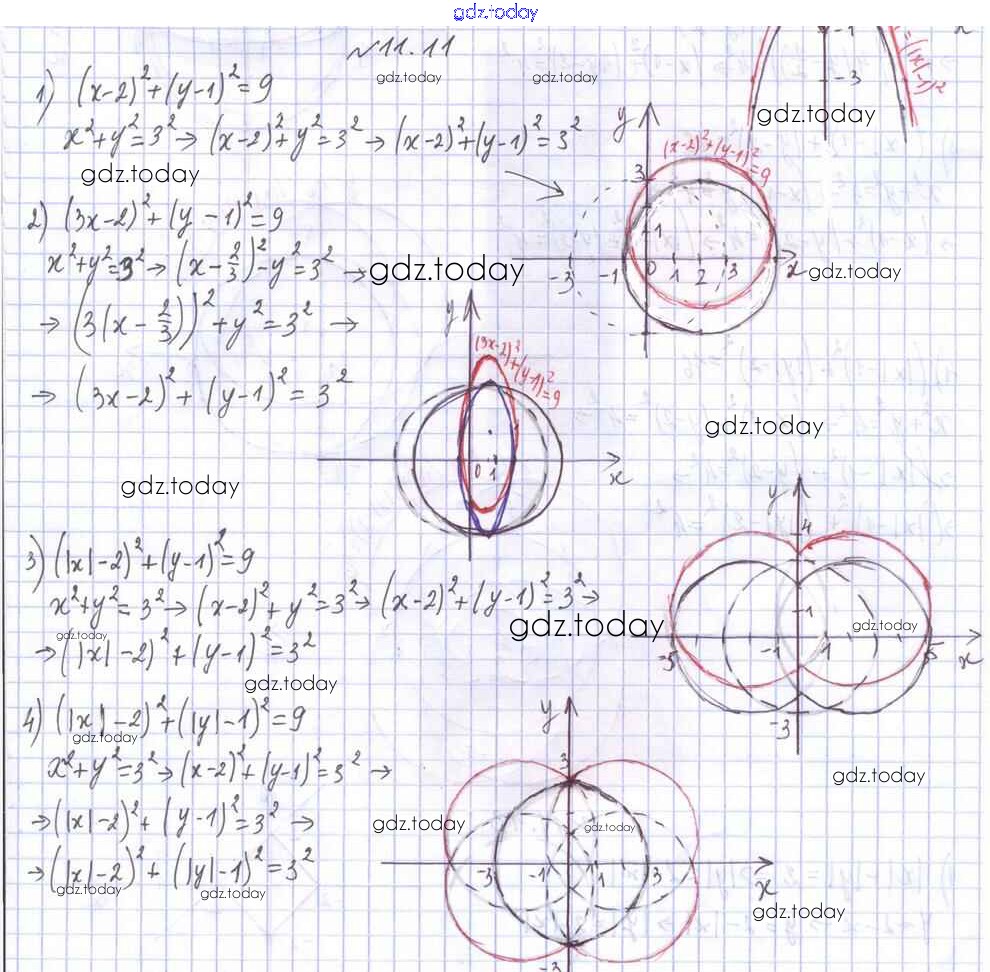 gdz.today
№11.11
gdz.today gdz.today
1) (x-2)²+(y-1)²=9
x²+y²=3² → (x-2)²+y²=3² → (x-2)²+(y-1)²=3²
gdz.today
2) (3x-2)²+(y-1)²=9
x²+y²=3² → (x-2/3)²-y²=3² →
gdz.today
→ (3(x-2/3))²+y²=3² →
→ (3x-2)²+(y-1)²=3²
gdz.today
3) (|x|-2)²+(y-1)²=9
x²+y²=3² → (x-2)²+y²=3² → (x-2)²+(y-1)²=3² →
gdz.today
gdz.today
→ (|x|-2)²+(y-1)²=3²
gdz.today
4) (|x|-2)²+(|y|-1)²=9
gdz.today
x²+y²=3² → (x-2)²+(y-1)²=3² →
→ (|x|-2)²+(y-1)²=3² →
→ (|x|-2)²+(|y|-1)²=3²
gdz.today gdz.today
-1 x
-3
=(|x|-1)²
gdz.today
y
(x-2)²+(y-1)²=9
3
1
-3 -1 0 1 2 3 x
gdz.today
y
(3x-2)²+(y-1)²=9
0 1 x
gdz.today
y
4
1
gdz.today
-5 -1 1 5 x
-3
y
3
gdz.today
gdz.today
gdz.today
-3 -1 1 3 x
gdz.today
-3